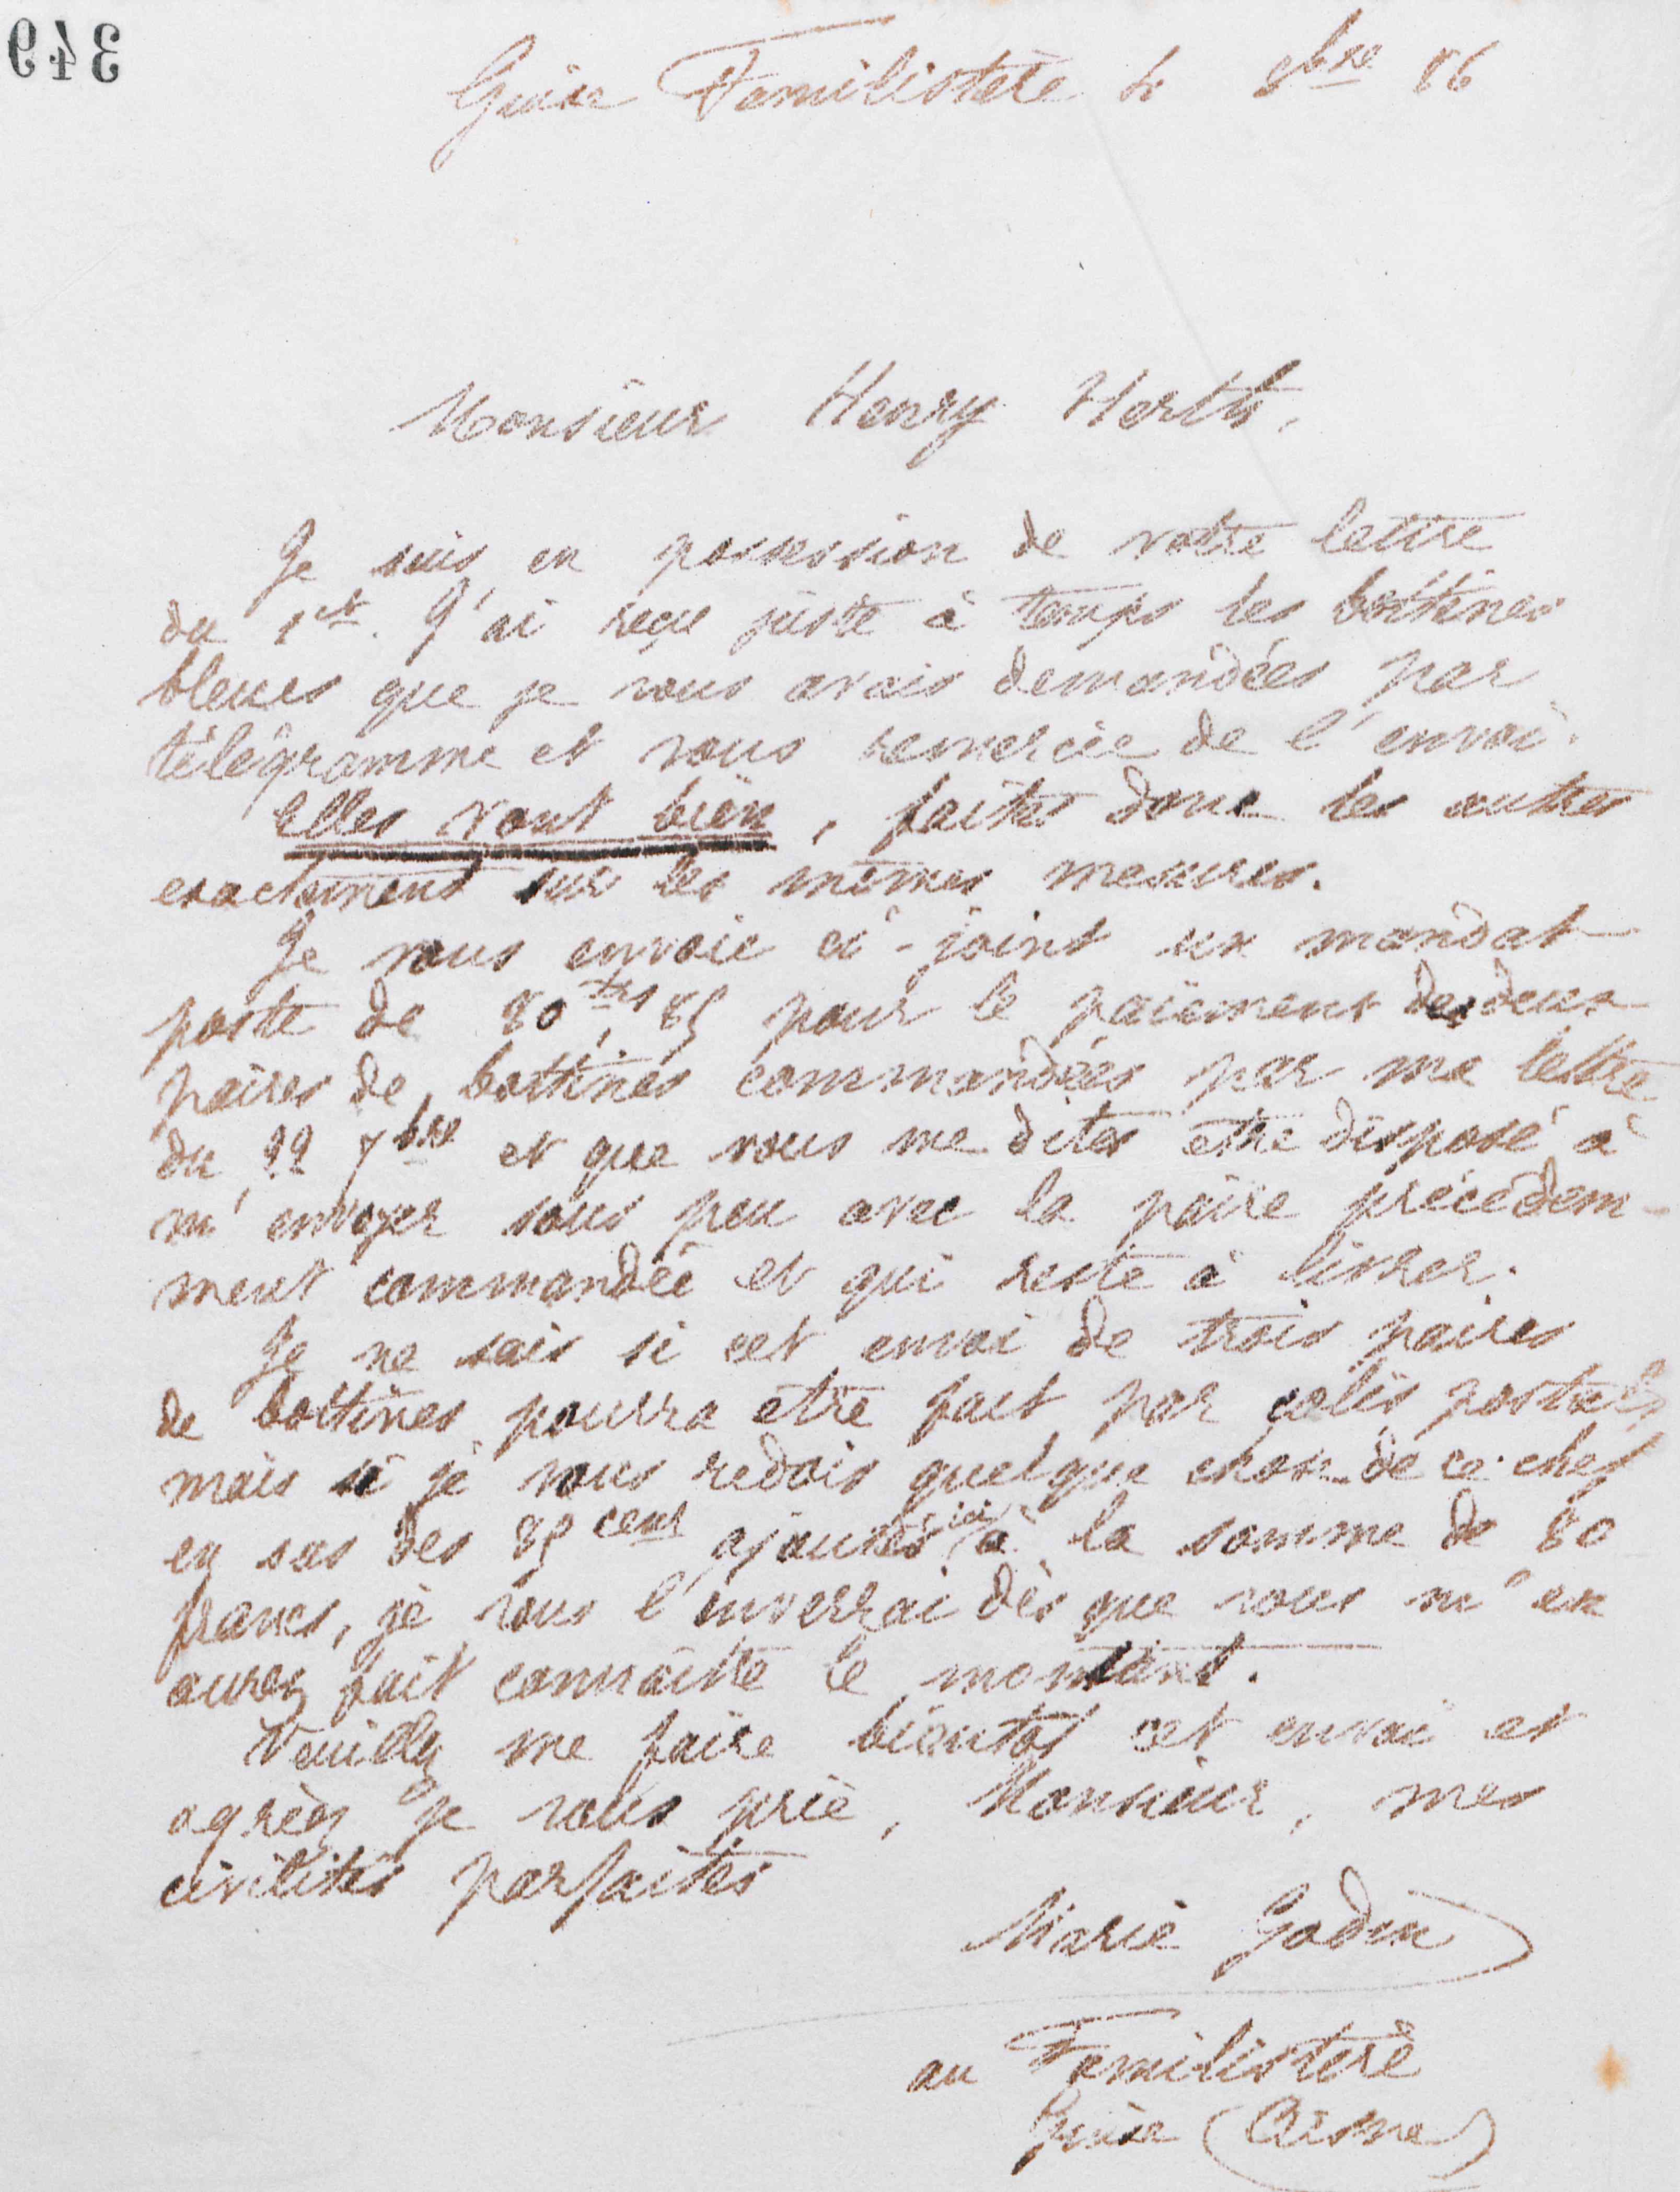 349
Guise Familistère 4 8bre 86
Monsieur Henry Herth,
Je suis en possession de votre lettre
du 1er. J'ai reçu juste à temps les bottines
bleues que je vous avais demandées par
télégramme et vous remercie de l'envoi.
Elles vont bien, faites donc les autres
exactement sur les mêmes mesures.
Je vous envoie ci-joint un mandat
poste de 80frs,85 pour le paiement des deux
paires de bottines commandées par ma lettre
du 22 7bre et que vous me dites être disposé à
m'envoyer sous peu avec la paire précédem-
ment commandée et qui reste à livrer.
Je ne sais si cet envoi de trois paires
de bottines pourra être fait par colis postal,
mais si je vous redois quelque chose de ce chef
en sus des 85 cent ajoutés ici à la somme de 80
francs, je vous l'enverrai dès que vous m'en
aurez fait connaître le montant.
Veuillez me faire bientôt cet envoi et
agréez je vous prie, Monsieur, mes
civilités parfaites
Marie Godin
au Familistère
Guise (Aisne)